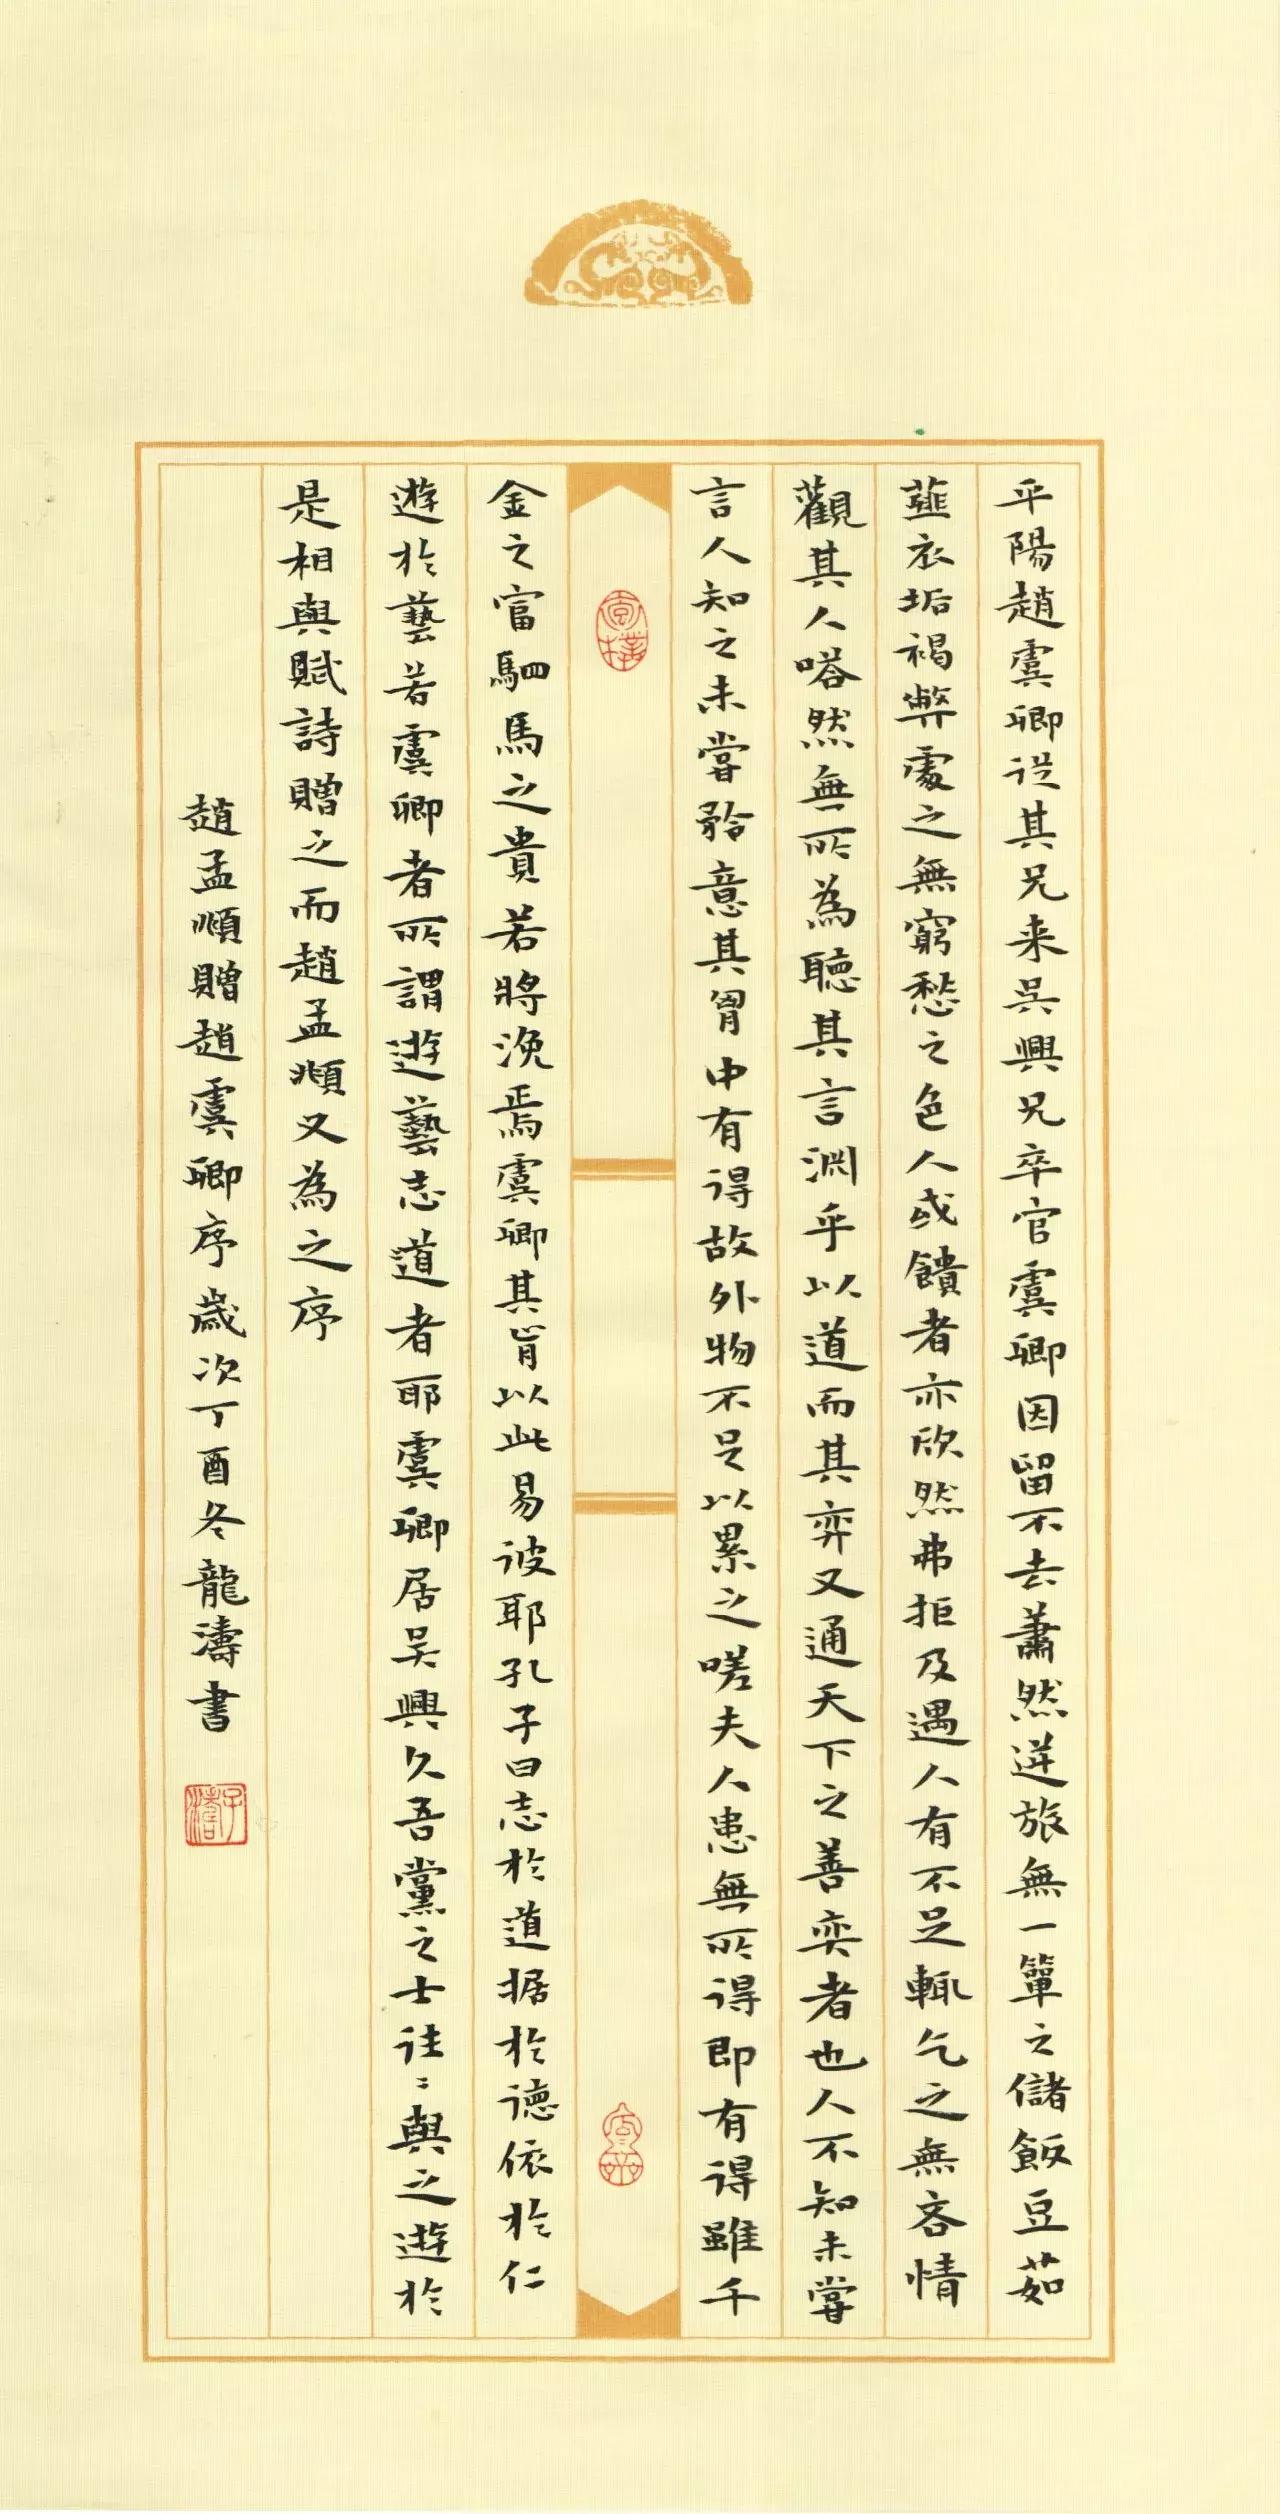 平陽趙虞卿從其兄来吳興兄卒官虞卿因留不去蕭然逆旅無一簞之儲飯豆茹
薤衣垢褐弊處之無窮愁之色人或饋者亦欣然弗拒及遇人有不足輒乞之無吝情
觀其人嗒然無所為聽其言淵乎以道而其弈又通天下之善奕者也人不知未嘗
言人知之未嘗矜意其胷中有得故外物不足以累之嗟夫人患無所得即有得雖千
金之富駟馬之貴若將浼焉虞卿其肯以此易彼耶孔子曰志於道据於德依於仁
遊於藝若虞卿者所謂遊藝志道者耶虞卿居吴興久吾黨之士往〻與之遊於
是相與賦詩贈之而趙孟頫又為之序
趙孟頫贈趙虞卿序歲次丁酉冬龍濤書